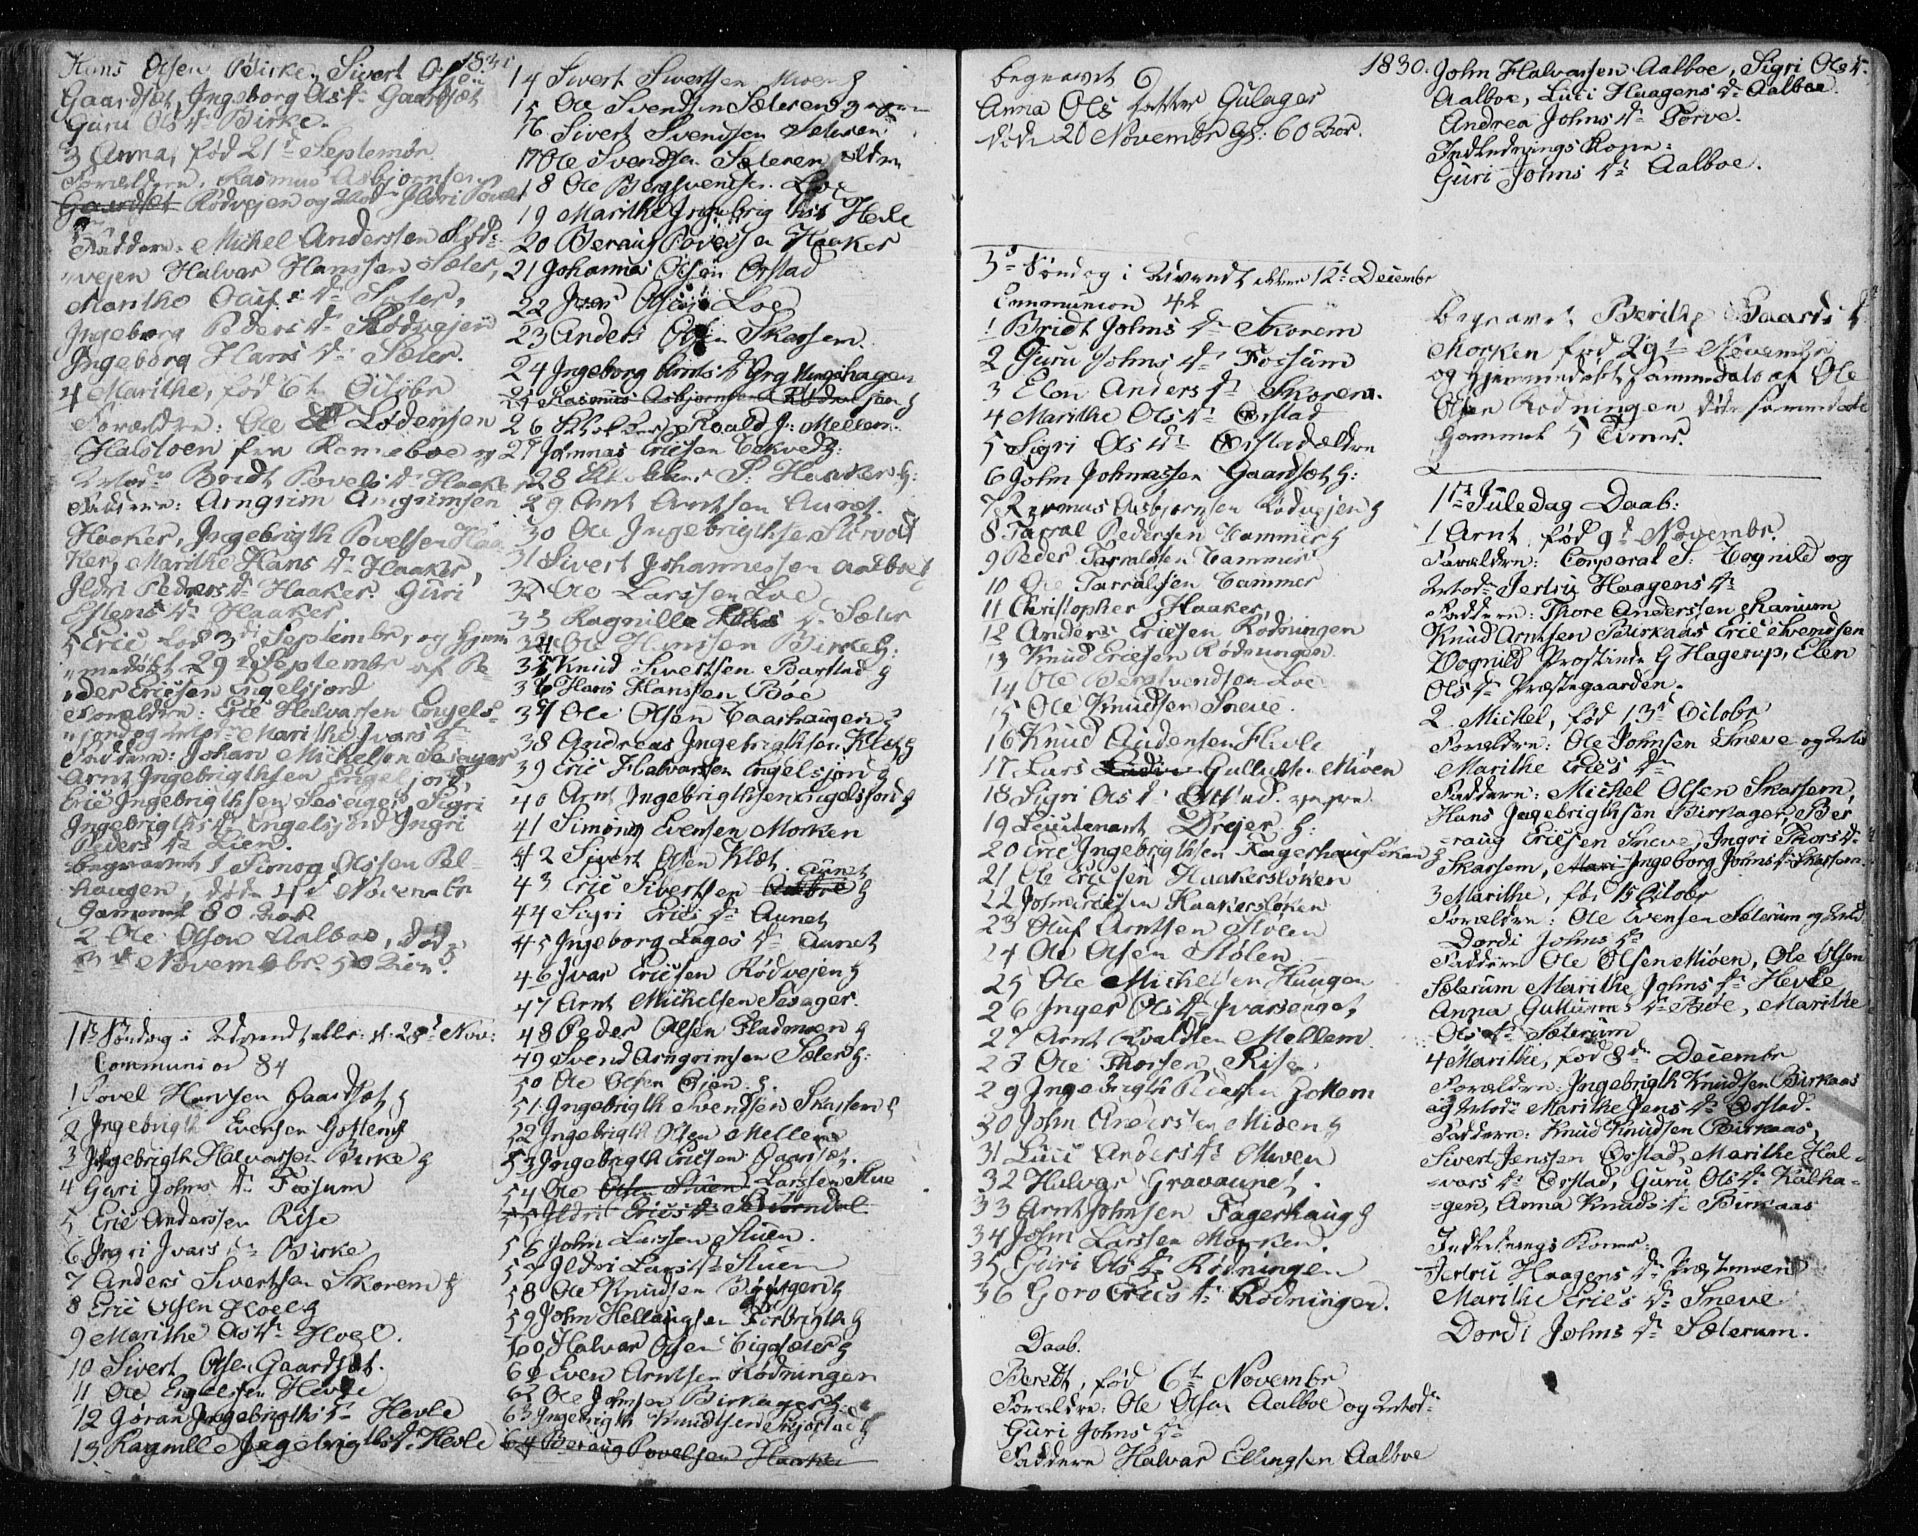 1830
Hans Olsen Birke, Sivert
Gaardsæt, Ingeborg Ols Dr Gaardsæt
Guru Ols Dr Birke.
3 Anna, fød 21 Septembr
Forældre. Rasmus Asbjørnsen
Gaardsæt Rødvejen og Mod. Ildri
Faddere: Michel Anderssen Rød-
vejen Halvar Hanssen Sæter,
Marithe Dr Sæter,
Ingeborg Peders Dr Rødvejen
Ingeborg Hans Dr Sæter.
4 Marithe, fød 6t Octobr
Forældre: Ole Lødensen
Halstoen fra Renneboe og
Mod. Bridt Povels Dr Haaker
Faddere: Arngrim Arngrimsen
Haaker, Ingebrigth Povelsen Haa-
ker, Marithe Hans Dr Haaker,
Ildri Peders Dr Haaker. Guri
Estens Dr Haaker
5 Eric fød 3 Septembr, og hjem-
medøbt 29 Septembr af Pe-
der Ericsen Engelsjord
Forældre: Eric Halvarsen Engels-
jord og Mod. Marithe Ivars Dr
Faddere: Johan Michelsen Sesager
Arnt Ingebrigthsen Engelsjord,
Eric Ingebrigthsen Sesager, Sigri
Ingebrigths Dr Engelsjord Ingri
Peders Dr Lien.
begravet 1 Simon Olssen Pel-
haugen, døde 4 Novembr
Gammel 80 Aar
2 Ole Olsen Aalboe, død
3 Novembr. 50 Aar.
1te Søndag i Advendt 28 Nov:
Communion 84
1 Povel Hanssen Gaardsæt h
2 Ingebrigth Evensen Gotterud
3 Ingebrigth Halvarsen Birke h
4 Guri Johns Dr Fossum
5 Eric Anderssen Rise
6 Ingri Ivars Dr Birke
7 Anders Sivertsen Skorem h
8 Eric Olsen Hoel h
9 Marithe Ols Dr Hoel.
10 Sivert Olsen Gaardsæt.
11 Ole Hevle
12 Jøran Ingebrigths Dr Hevle
13 Ragnille Ingebrigths Dr Hevle
14 Sivert Sivertsen Moen h
15 Ole Svendsen Sæteren
16 Sivert Svendsen Sæteren
17 Ole Svendsen Sæteren ældre
18 Ole Bergsvendsen Loe
19 Marithe Ingebrigths Hevle
20 Beraug Povelsen Haaker
21 Johannes Olsen Ørstad
22 Olsen Loe
23 Anders Olsen Skarsem.
24 Ingeborg Arnts Dr
25 Rasmus Asbjørnsen Rødvejen h
26 Roald Mellem.
27 Johnnas Ericsen
28 Haaker h:
29 Arnt Arntsen Aunet.
30 Ole Ingebrigthsen
31 Sivert Johannessen Aalboe
32 Ole Larssen Loe
33 Ragnille Dr Sæter
34 Ole Hanssen Birke h:
35 Knud Sivertsen Barstad h
36 Hans Hanssen Boe
37 Ole Olsen Caashaugen h
38 Andreas Ingebrigthsen Klæt h
39 Eric Halvarssen Engelsjord h
40 Arnt Ingebrigthsen Engelsjord h
41 Simon Evensen Morken
42 Sivert Olsen Klæt
43 Eric Sivertsen Aunet h
44 Sigri Erics Dr Aunet
45 Ingeborg Dr Aunet
46 Ivar Ericsen Rødvejen h
47 Arnt Michelsen Sesager.
48 Peder Olsen Fladmoen h
49 Svend Arngrimsen Sæter h:
50 Ole Olsen h.
51 Ingebrigth Svendsen Skarsem h
52 Ingebrigth Olsen Mellem
53 Ingebrigth Ericsen Gaardsæt.
54 Ole Olsen Stuen Larssen Stue
55 Ildri Erics Dr Bjørndal
56 John Larssen Stuen.
57 Ildri Lars Dr Stuen
58 Ole Knudsen h
59 John Hellaugsen Forbrigth h
60 Halvar Olsen h
61 Even Arntsen Rødningen
62 Ole Johnsen Birkager
63 Ingebrigth Knudtsen h
64 Beraug Povelsen Haaker
1830.
begravet 6
Anna Ols Datter Gulager
døde 20 Novembr gl: 60 Aar.
3die Søndag i Advendt 12t Decembr
Communion 42
1 Bridt Johns Dr Skorem
2 Guru Johns Dr Fossum
3 Elen Anders Dr Skorem.
4 Marithe Ols Dr Ørstad
5 Sigri Ols Dr Ørstad ældre
6 John Johnassen Gaardsæt h:
7 Rasmus Asbjørnsen Rødvejen h
8 Tarral Pedersen Cammer h
9 Peder Tarralsen Cammer
10 Ole Tarralsen Cammer
11 Christopher Haaker,
12 Anders Ericsen Rødningen
13 Knud Ericsen Rødningen
14 Ole Bergsvendsen Loe.
15 Ole Knudsen Sneve.
16 Knud Audensen Hevle
17 Lars Gullichsen Mioen
18 Sigri Ols Dr Ørstad yngre.
19 Leiutenant Drejer h:
20 Eric Ingebrigthsen Fagerhaugløken h
21 Ole Ericsen Haakersløken
22 John Ericsen Haakersløken
23 Oluf Arntsen Stølen
24 Ole Olsen Stølen
25 Ole Michelsen Haugen
26 Inger Ols Dr Ivarsenget,
27 Arnt Roaldsen Mellem.
28 Ole Thorsen Rise,
29 Ingebrigth Zottem
30 John Anderssen Mioen h
31 Luci Anders Dr Mioen
32 Halvar Gravaunet.
33 Arnt Johnsen Fagerhaug h
34 John Larssen Morken.
35 Guri Ols Dr Rødningen
36 Goro Erics Dr Rødningen.
Daab.
Beredt, fød 6t Novembr
Forældre: Ole Olsen Aalboe og Mod.
Guri Johns Dr
Faddere Halvar Ellingsen Aalboe
John Halvarsen Aalboe, Sigri Ols Dr
Aalboe, Luci Haagens Dr Aalboe
Andrea Johns Dr Torve.
Indledningskone:
Guri Johns Dr Aalboe.
begravet Berithe
Morken fød 29 Novembr
og hjemmedøbt samme dato af Ole
Olsen Rødningen døde samme dato
gammel 5 Timer.
1te Juledag Daab:
1 Arnt, fød 9 Novembr.
Forældre: Corporal S. Vognild og
Mod. Jertru Haagens Dr
Faddere: Thore Anderssen
Knud Arntsen Birkaas Eric Svendsen
Vognild Hagerup, Elen
Ols Dr Præstegaarden.
2 Michel, fød 13 Octobr
Forældre: Ole Johnsen Sneve og Mod
Marithe Erics Dr
Faddere: Michel Olsen Skarsem,
Hans Ingebrigthsen Birkager, Ber-
raug Ericsen Sneve, Ingri Thors Dr
Skarsem, Mari Ingeborg Johns Dr Skarsem.
3 Marithe, fød 15 Octobr
Forældre: Ole Evensen Sæterum og Mod.
Dordi Johns Dr
Faddere Ole Olsen Mioen, Ole Olsen
Sæterum Marithe Johns Dr Hevle
Anna Guttorms Dr Boe, Marithe
Ols Dr Sæterum
4 Marithe, fød 8de Decembr
Forældre: Ingebrigth Knudsen Birkaas
og Mod. Marithe Jens Dr Ørstad.
Faddere: Knud Knudsen Birkaas,
Sivert Jenssen Ørstad, Marithe Hal-
vars Dr Ørstad, Guru Ols Dr Kulha-
gen, Anna Knuds Dr Birkaas
Indledningskoner:
Jertru Haagens Dr Præstmoen
Marithe Erics Dr Sneve
Dordi Johns Dr Sæterum.